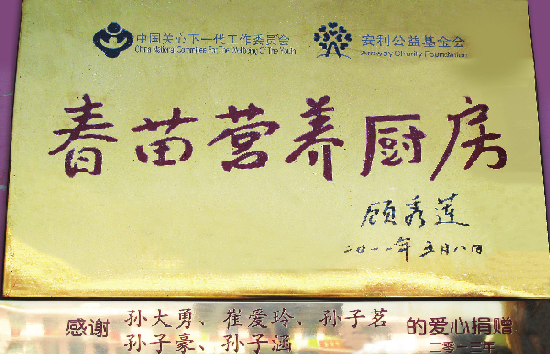 中国关心下一代工作委员会
China National Committee For The Wellbeing Of The Youth
安利公益基金会
Amway Charity Foundation
春苗营养厨房
顾秀莲
二〇一一年五月八日
感谢 孙大勇、崔爱玲、孙子茗 的爱心捐赠
孙子豪、孙子涵
二〇一三年